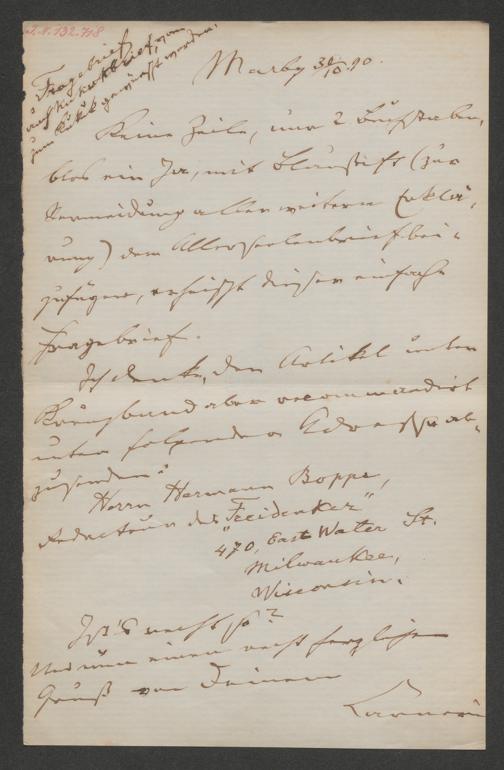 I.N. 132.718
Fragebrief,
auf Kuk
zum Kukuk gewünscht werden.
Marbg 30/10. 90.
Keine Zeile, nur 2 Buchstaben,
blos ein Ja, mit Blaustift (zur
Vermeidung aller weitern Erklä-
rung) dem Allerseelenbrief bei-
zufügen, erheischt dieser einfache
Fragebrief.
Ich denke, den Artikel unter
Kreuzband aber recommandirt
unter folgender Adresse ab-
zusenden:
Herrn Hermann Boppe,
Redacteur des "Freidenker"
470, East Water St.
Milwaukee,
Wisconsin.
Ist's recht so?
Und nun einen recht herzlichen
Gruß von Deinem
Carneri